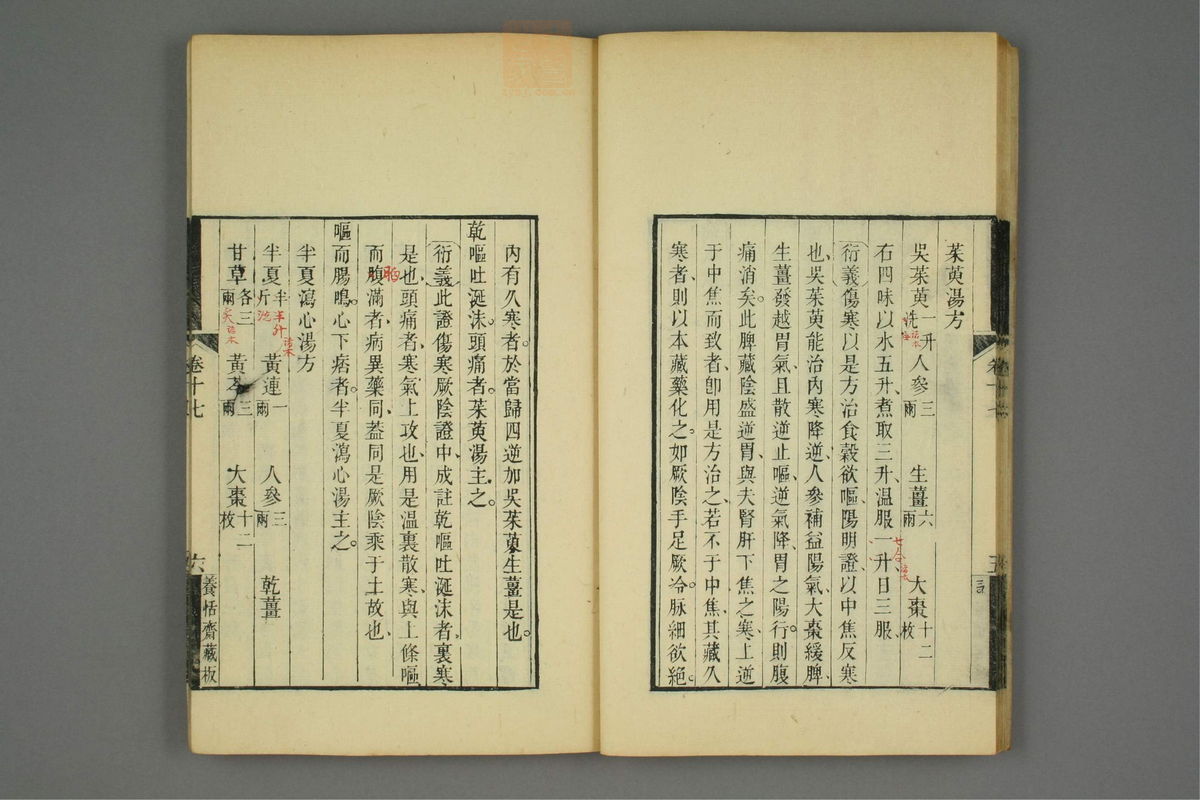 茱萸湯方
吳茱萸一升洗 人參三兩 生薑六兩 大棗十二枚
右四味以水五升煮取三升温服一升日三服
衍義傷寒以是方治食穀欲嘔陽明證以中焦反寒
也吳茱萸能治內寒降逆人參補益陽氣大棗緩脾
生薑發越胃氣且散逆止嘔逆氣降胃之陽行則腹
痛消矣此脾藏陰盛逆胃與夫腎肝下焦之寒上逆
于中焦而致者卽用是方治之若不于中焦其藏久
寒者則以本藏藥化之如厥陰手足厥冷脉細欲絶
卷十七
五
內有久寒者於當歸四逆加吳茱萸生薑是也
乾嘔吐涎沫頭痛者茱萸湯主之
衍義此證傷寒厥陰證中成註乾嘔吐涎沫者裏寒
是也頭痛者寒氣上攻也用是温裏散寒與上條嘔
而腹滿者病異藥同蓋同是厥陰乘于土故也
胸
嘔而腸鳴心下痞者半夏瀉心湯主之
半夏瀉心湯方
半夏半斤洗 黃連一兩 人參三兩 乾薑
半升
甘草各三兩 黃芩三兩 大棗十二枚
卷十七
六
養恬齋藏板